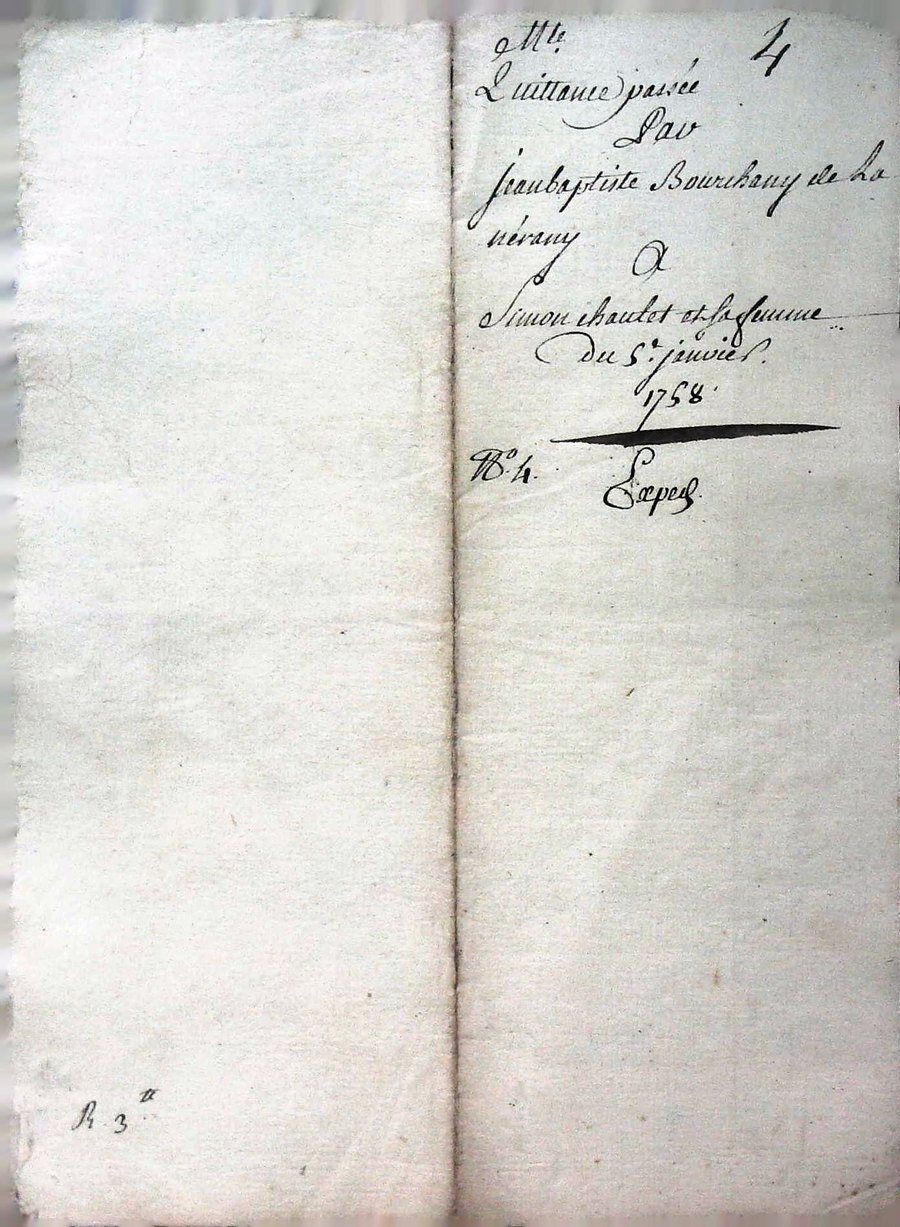 Mte. 4
Quittance passée
Par
jeanbaptiste Bourchany de La
nérany
A
Simon chaulet et sa femme
Du 5e. janvier.
1758.
No. 4. Exped.
R. 3 tt